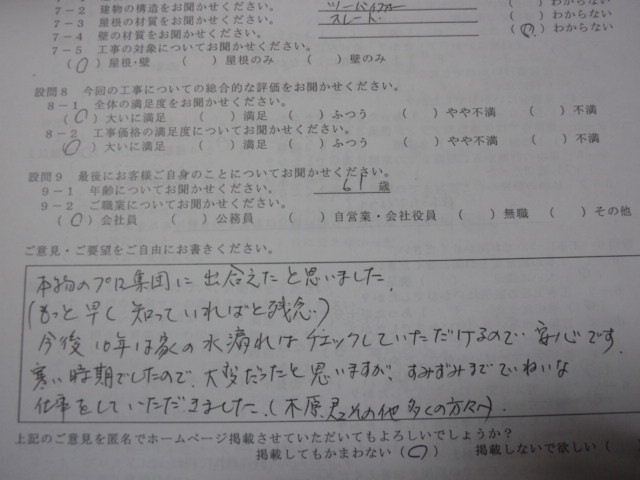 7-2 建物の構造をお聞かせください。 ツーバイフォー
( )わからない
7-3 屋根の材質をお聞かせください。 スレート.
( )わからない
7-4 壁の材質をお聞かせください。
(○)わからない
7-5 工事の対象についてお聞かせください。
(○)屋根・壁 ( )屋根のみ ( )壁のみ
設問8 今回の工事についての総合的な評価をお聞かせください。
8-1 全体の満足度をお聞かせください。
(○)大いに満足 ( )満足 ( )ふつう ( )やや不満 ( )不満
8-2 工事価格の満足度についてお聞かせください。
(○)大いに満足 ( )満足 ( )ふつう ( )やや不満 ( )不満
設問9 最後にお客様ご自身のことについてお聞かせください。
9-1 年齢についてお聞かせください。 61 歳
9-2 ご職業についてお聞かせください。
(○)会社員 ( )公務員 ( )自営業・会社役員 ( )無職 ( )その他
ご意見・ご要望をご自由にお書きください。
本物のプロ集団に出合えたと思いました.
(もっと早く知っていればと残念.)
今後10年は家の水漏れはチェックしていただけるので安心です.
寒い時期でしたので、大変だったと思いますが、すみずみまでていねいな
仕事をしていただきました.(木原君その他多くの方々へ).
上記のご意見を匿名でホームページ掲載させていただいてもよろしいでしょうか?
掲載してもかまわない(○) 掲載しないで欲しい(